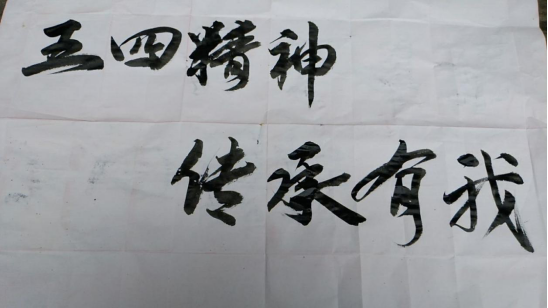 五四精神
传承有我